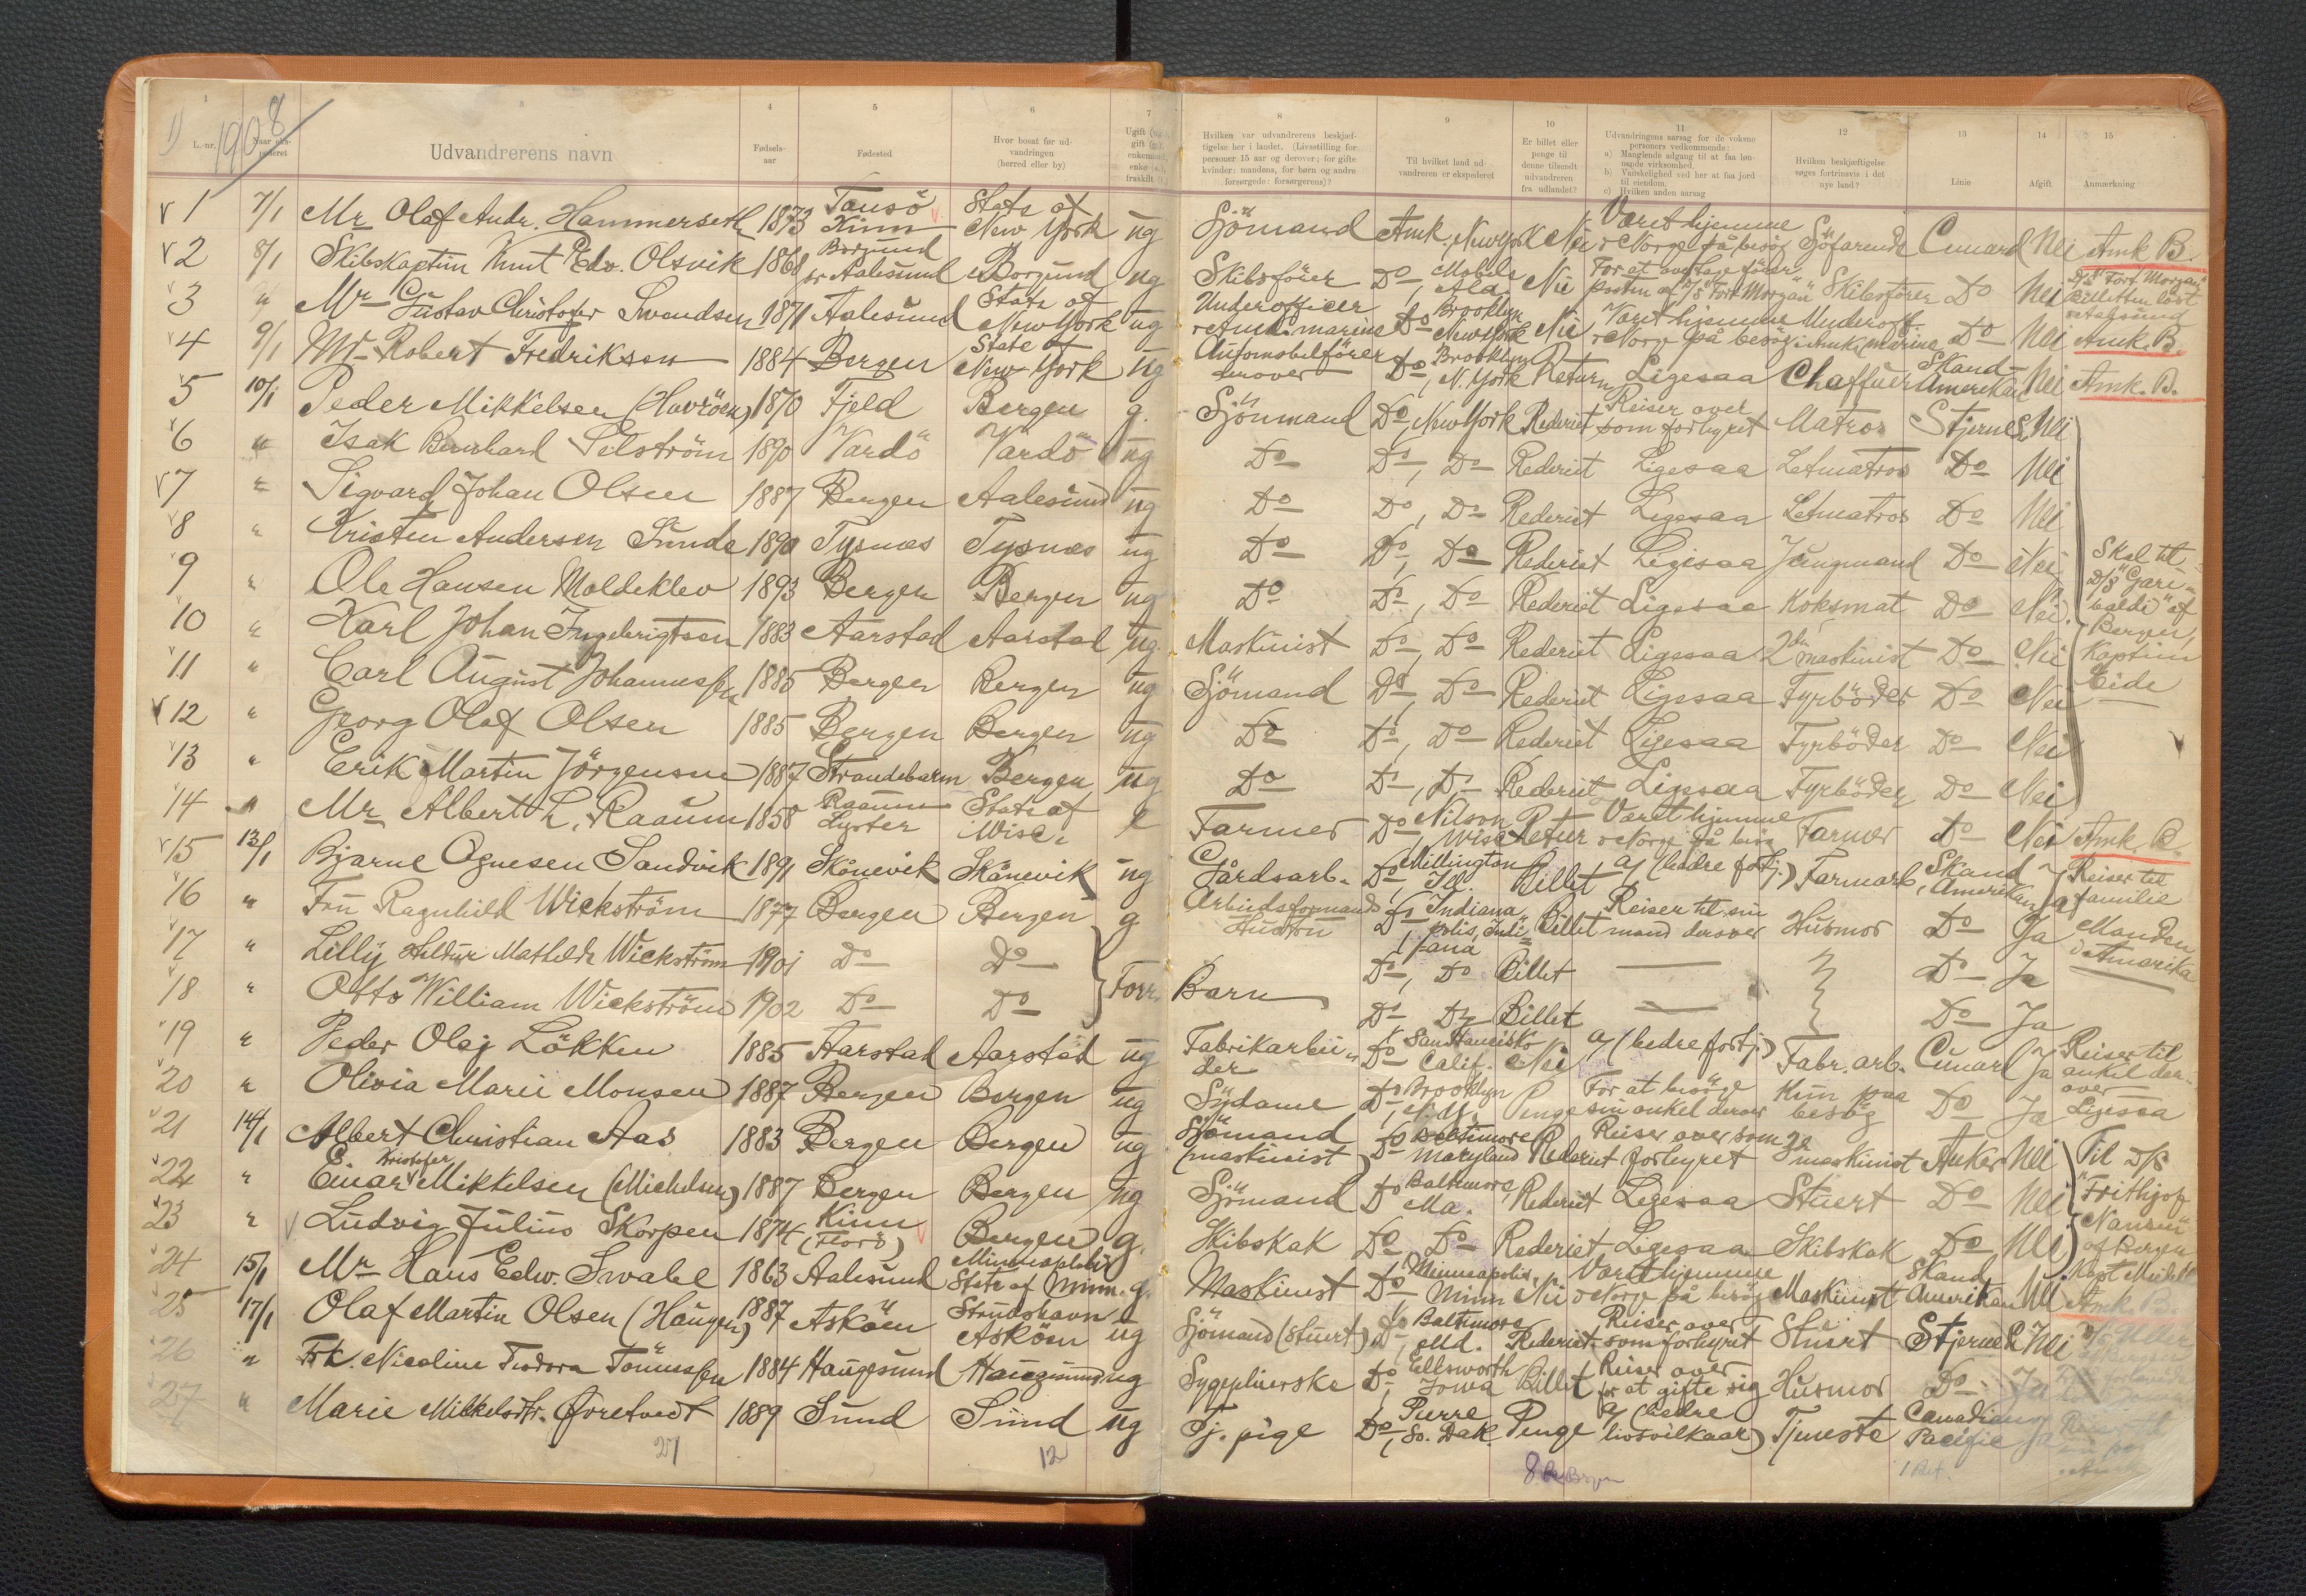 1) 1908
1 2 3 4 5 6 7 8 9 10 11 12 13 14 15
L.-nr.
Udvandrerens navn
Fødsels-aar
Fødested
Hvor bosat før udvandringen (herred eller by)
Hvilken var udvandrerens beskjæftigelse her i landet. (Livsstilling for personer 15 aar og derover; for gifte kvinder: mandens, for børn og andre forsørgede: forsørgerens)?
Til hvilket land udvandreren er ekspederet
Er billet eller penge til denne tilsendt udvandreren fra udlandet?
Udvandringens aarsag for de voksne personers vedkommende:
a) Manglende adgang til at faa lønnende virksomhed.
b) Vanskelighed ved her at faa jord til eiendom.
c) Hvilken anden aarsag
Hvilken beskjæftigelse søges fortrinsvis i det nye land?
Linie
Afgift
Anmærkning
1 7/1 Mr Olaf Andr. Hammerseth 1873 Tansö Kinn State of New York ug Sjömand Amk. New York Nei Været hjemme i Norge på besög Söfarende Cunard Nei Amk B.
2 8/1 Skibskaptein Knut Edv. Olsvik 1868 Borgund pr Aalesund Borgund ug Skibsförer Do, Mobile Ala. Nei For at overtage förerposten af D/S "Fort Morgan" Skibsförer Do Nei D/S "Fort Morgan" Billetten löst i Aalesund
3 " Mr Gustav Christofer Svendsen 1871 Aalesund State of New York ug Underofficer i Amk. marine Do Brooklyn New York Nei Været hjemme i Norge på besög Underoff. i Amk. marine Do Nei Amk. B.
4 9/1 Mr Robert Fredriksen 1884 Bergen State of New York ug Automobilförer derover Do, Brooklyn N. York Return Ligesaa Chaffuer Skand-Amerikan Nei Amk. B.
5 10/1 Peder Mikkelsen (Havröen) 1870 Fjeld Bergen g. Sjömand Do, New York Rederiet Reiser over som forhyret Matros Stjerne L. Nei
6 " Isak Bernhard Selström 1890 Vardö Vardö ug Do Do, Do Rederiet Ligesaa Letmatros Do Nei
7 " Sigvard Johan Olsen 1887 Bergen Aalesund ug Do Do, Do Rederiet Ligesaa Letmatros Do Nei
8 " Kristen Andersen Sunde 1890 Tysnes Tysnes ug Do Do, Do Rederiet Ligesaa Jungmand Do Nei
9 " Ole Hansen Moldeklev 1893 Bergen Bergen ug Do Do, Do Rederiet Ligesaa Koksmat Do Nei
10 " Karl Johan Ingebrigtsen 1883 Aarstad Aarstad ug. Maskinist Do, Do Rederiet Ligesaa 2den maskinist Do Nei
11 " Carl August Johannessen 1885 Bergen Bergen ug Sjömand Do, Do Rederiet Ligesaa Fyrböder Do Nei
12 " Georg Olaf Olsen 1885 Bergen Bergen ug Do Do, Do Rederiet Ligesaa Fyrböder Do Nei
13 " Erik Martin Jörgensen 1887 Strandebarm Bergen ug Do Do, Do Rederiet Ligesaa Fyrböder Do Nei
Skal til D/S "Garibaldi" af Bergen, Kaptein Eide
14 " Mr Albert L. Raaum 1858 Raaum Lyster State of Wisc. e Farmer Do, Nilson Wisc Retur Været hjemme i Norge på besög Farmer Do Nei Amk. B.
15 13/1 Bjarne Ognesen Sandvik 1891 Skånevik Skånevik ug Gårdsarb. Do, Millington Ill. Billet a) (bedre fortj.) Farmarb. Skand. Amerikan Ja Reiser til familie
16 " Fru Ragnhild Wickström 1877 Bergen Bergen g Arbeidsformands Hustru Do, Indianapolis, Indiana Billet Reiser til sin mand derover Husmor Do Ja Manden i Amerika
17 " Lilly Hildur Mathilde Wickström 1901 Do Do Do, Do Billet — Do Ja
18 " Otto William Wickström 1902 Do Do Fors. Barn Do Do Billet — Do Ja
19 " Peder Olaj Lökken 1885 Aarstad Aarstad ug Fabrikarbeider Do San Francisko Calif. Nei a) (bedre fortj.) Fabr. arb. Cunard Ja Reiser til onkel derover
20 " Olivia Marie Monsen 1887 Bergen Bergen ug Sydame Do, Brooklyn N.Y. Penge For at besöge sin onkel derover Kun paa besög Do Ja Ligesaa
21 14/1 Albert Christian Aas 1883 Bergen Bergen ug Sjömand (maskinist) Do Baltimore Maryland Rederiet Reiser over som forhyret 2den maskinist Anker Nei
22 " Einar Kristofer Mikkelsen (Michelsen) 1887 Bergen Bergen ug Sjömand Do Baltimore, Ma. Rederiet Ligesaa Stuert Do Nei
23 " Ludvig Julius Skorpen 1874 Kinn (Florö) Bergen g. Skibskok Do Do Rederiet Ligesaa Skibskok Do Nei
Til D/S "Frithjof Nansen" af Bergen
24 15/1 Mr Hans Edw. Swabe 1863 Aalesund Minneapolis State of Minn. g. Maskinist Do Minneapolis, Minn Nei Været hjemme i Norge på besög Maskinist Skand Amerikan Nei Amk B.
25 17/1 Olaf Martin Olsen (Haugen) 1887 Asköen Strudshavn Asköen ug Sjömand (stuert) Do, Baltimore Md. Rederiet Reiser over som forhyret Stuert Stjerne L. Nei
26 " Frk. Nicoline Teodora Tönnessen 1884 Haugesund Haugesund ug Sygepleierske Do, Ellsworth Iowa Billet Reiser over for at gifte sig Husmor Do Ja
27 " Marie Mikkelsdtr. Øvretvedt 1889 Sund Sund ug Tj. pige Do, Pierre So. Dak. Penge a) (bedre livsvilkaar) Tjeneste Canadian Pacific Ja
27 12 8